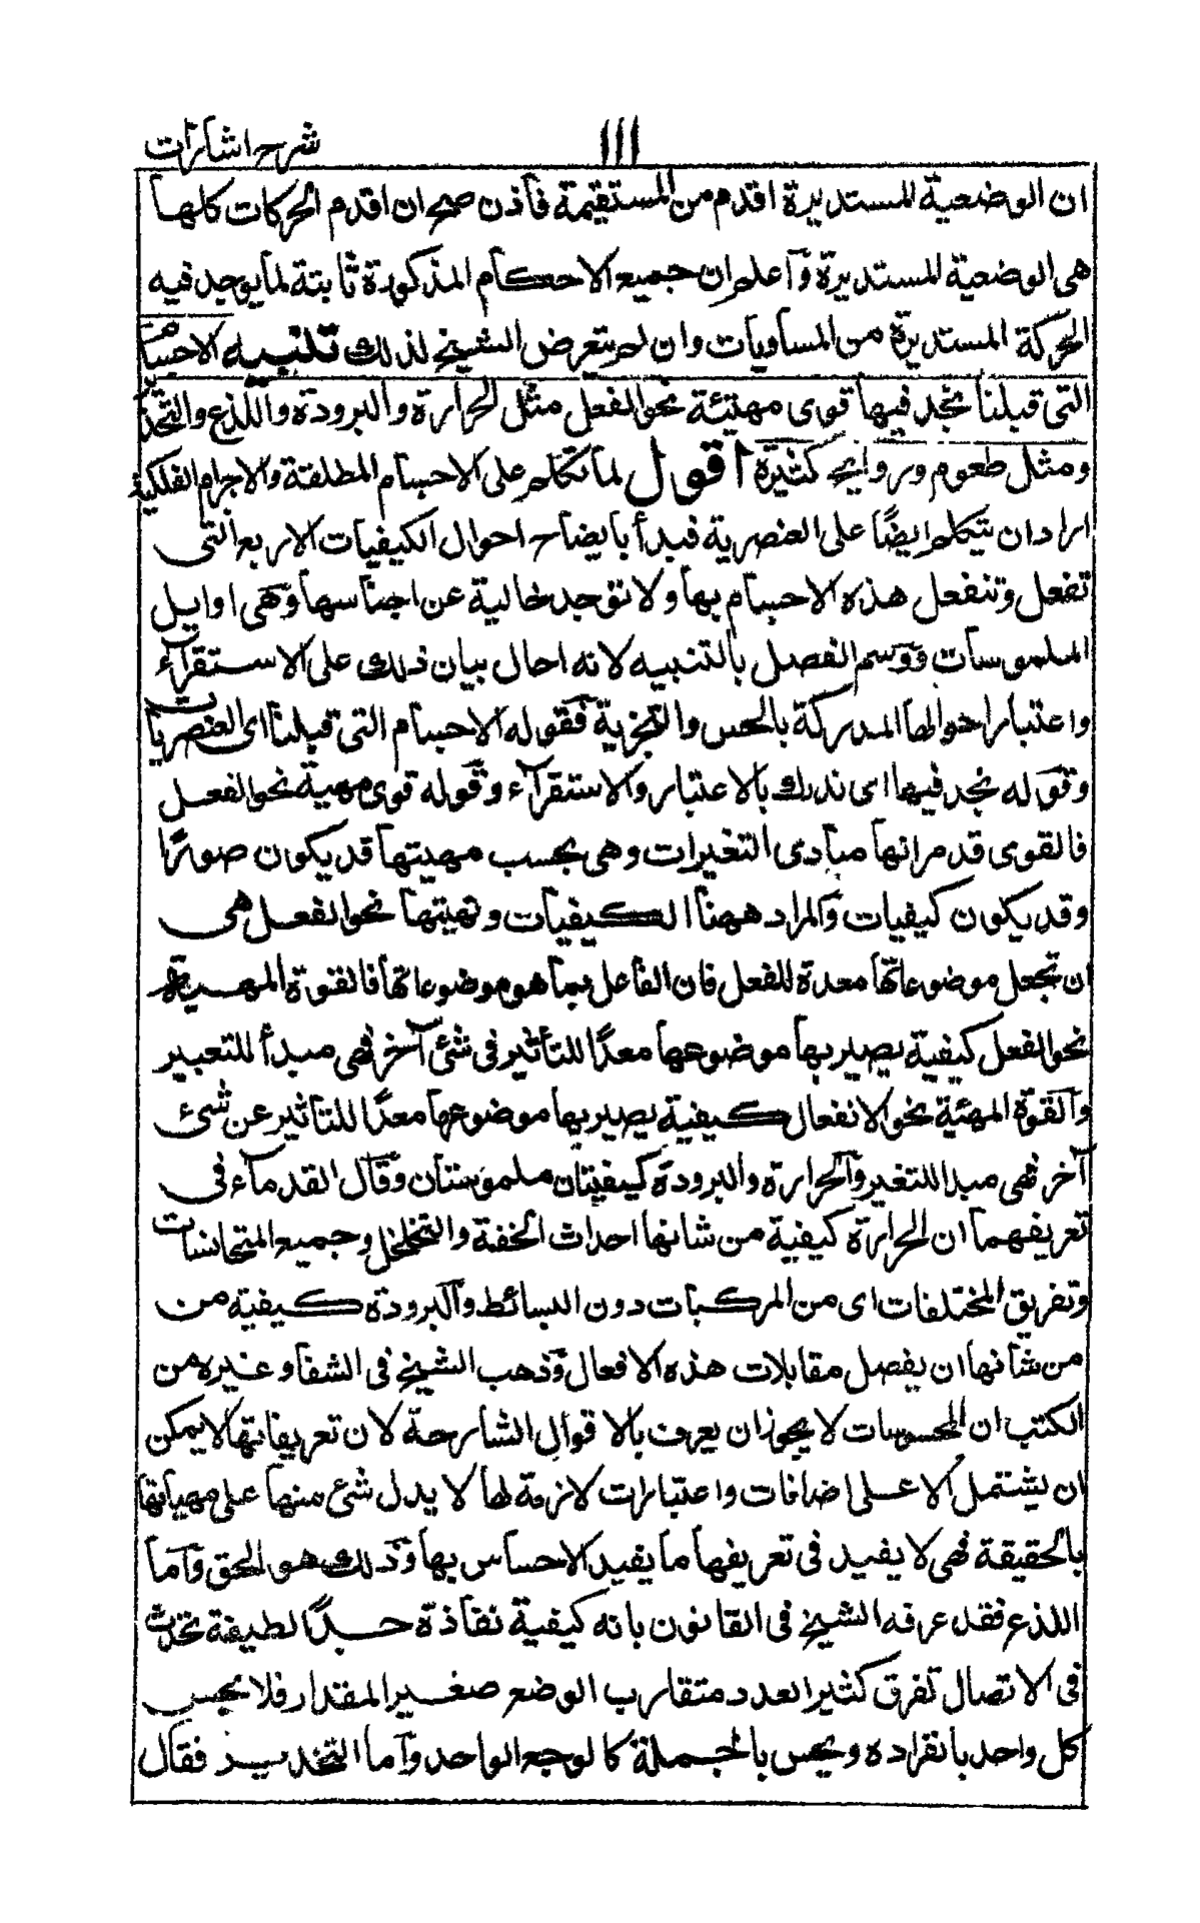 ١١١
شرح اشارات
ان الوضعية المستديرة اقدم من المستقيمة فاذن صح ان اقدم الحركات كلها
هى الوضعية المستديرة واعلم ان جميع الاحكام المذكورة ثابتة لما يوجد فيه
الحركة المستديرة من السماويات وان لم يتعرض الشيخ لذلك تنبيه الاجسام
التى قبلنا نجد فيها قوى مهيئة نحو الفعل مثل الحرارة والبرودة واللذع والتخدير
ومثل طعوم وروايح كثيرة اقول لما تكلم على الاجسام المطلقة والاجرام الفلكية
اراد ان يتكلم ايضًا على العنصرية فبدأ بايضاح احوال الكيفيات الاربع التى
تفعل وتنفعل هذه الاجسام بها ولا توجد خالية عن اجناسها وهى اوايل
الملموسات ووسم الفصل بالتنبيه لانه احال بيان ذلك على الاستقرآء
واعتبار احوالها المدركة بالحس والتجربة فقوله الاجسام التى قبلنا اى العنصريات
وقوله نجد فيها اى ندرك بالاعتبار والاستقرآء وقوله قوى مهيئة نحو الفعل
فالقوى قد مر انها مبادى التغيرات وهى بحسب مهيتها قد يكون صورًا
وقد يكون كيفيات والمراد ههنا الكيفيات وتهيئتها نحو الفعل هى
ان تجعل موضوعاتها معدة للفعل فان الفاعل بها هو موضوعاتها فالقوة المهيئة
نحو الفعل كيفية يصير بها موضوعها معدًا للتأثير فى شئ آخر فهى مبدأ للتغيير
والقوة المهئية نحو الانفعال كيفية يصير بها موضوعها معدًا للتاثير عن شئ
آخر فهى مبدا للتغير والحرارة والبرودة كيفيتان ملموستان وقال القدمآء فى
تعريفهما ان الحرارة كيفية من شانها احداث الخفة والتخلخل وجميع المتجانسات
وتفريق المختلفات اى من المركبات دون البسائط والبرودة كيفية من
من شانها ان يفصل مقابلات هذه الافعال وذهب الشيخ فى الشفا وغيره من
الكتب ان المحسوسات لا يجوز ان يعرف بالاقوال الشارحة لان تعريفاتها لا يمكن
ان يشتمل الا على اضافات واعتبارات لازمة لها لا يدل شئ منها على مهياتها
بالحقيقة فهى لا يفيد فى تعريفها ما يفيد الاحساس بها وذلك هو الحق واما
اللذع فقد عرفه الشيخ فى القانون بانه كيفية نفاذة جدًا لطيفة تحدث
فى الاتصال تفرق كثير العدد متقارب الوضع صغير المقدار فلا يحس
كل واحد بانفراده ويحس بالجملة كالوجع الواحد واما التخدير فقال